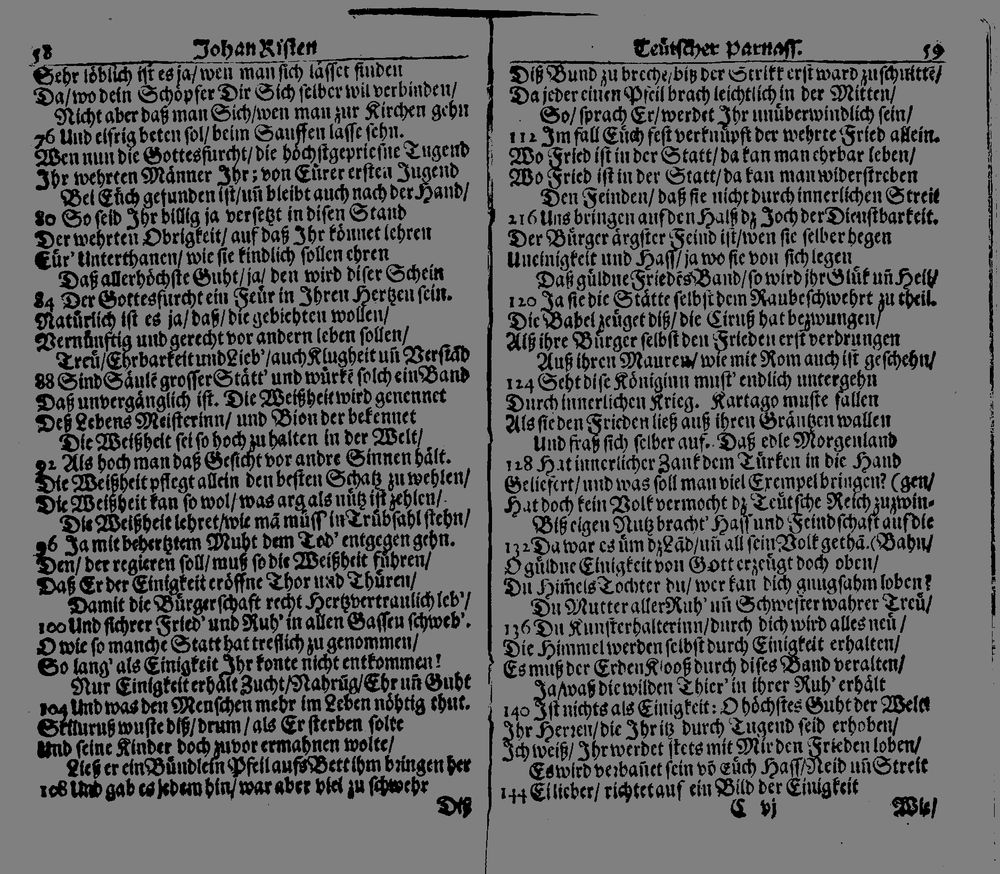 58 Johan Risten
Sehr löblich ist es ja/ weñ man sich lässet finden
Da/ wo dein Schöpfer Dir Sich selber wil verbinden/
Nicht aber daß man Sich/ wen man zur Kirchen gehn
76 Und eifrig beten sol/ beim Sauffen lasse sehn.
Wen nun die Gottesfurcht/ die höchstgepriesne Tugend
Ihr wehrten Männer Ihr; von Eürer ersten Jugend
Bei Eüch gefunden ist/ uñ bleibt auch nach der Hand/
80 So seid Ihr billig ja versetzt in disen Stand
Der wehrten Obrigkeit/ auf daß Ihr könnet lehren
Eür' Unterthanen/ wie sie kindlich sollen ehren
Daß allerhöchste Guht/ ja/ den wird diser Schein
84 Der Gottesfurcht ein Feür in Ihren Hertzen sein.
Natürlich ist es ja/ daß/ die gebiehten wollen/
Vernünftig und gerecht vor andern leben sollen/
Treü/ Ehrbarkeit und Lieb'/ auch Klugheit uñ Verstād
88 Sind Säulē grosser Stätt' und würkē solch ein Band
Daß unvergänglich ist. Die Weißheit wird genennet
Deß Lebens Meisterinn/ und Bion der bekennet
Die Weißheit sei so hoch zu halten in der Welt/
92 Als hoch man daß Gesicht vor andre Sinnen hält.
Die Weißheit pflegt allein den besten Schatz zu wehlen/
Die Weißheit kan so wol/ was arg als nütz ist zehlen/
Die Weißheit lehret/ wie mā müss' in Trübsahl stehn/
96 Ja mit behertztem Muht dem Tod' entgegen gehn.
Den/ der regieren soll/ muß so die Weißheit führen/
Daß Er der Einigkeit eröffne Thor und Thüren/
Damit die Bürgerschaft recht Hertzvertraulich leb'/
100 Und sichrer Fried' und Ruh' in allen Gassen schweb'.
O wie so manche Statt hat treflich zu genommen/
So lang' als Einigkeit Ihr konte nicht entkommen!
Nur Einigkeit erhält Zucht/ Nahrūg/ Ehr uñ Guht
104 Und was den Menschen mehr im Leben nöhtig thut.
Skiluruß wuste diß/ drum/ als Er sterben solte
Und seine Kinder doch zuvor ermahnen wolte/
Ließ er ein Bündlein Pfeil aufs Bett ihm bringen her
108 Und gab es jedem hin/ war aber viel zu schwehr
Diß
Teütscher Parnass. 59
Diß Bund zu breche/ biß der Strikk erst ward zuschnitte/
Da jeder einen Pfeil brach leichtlich in der Mitten/
So/ sprach Er/ werdet Ihr unüberwindlich sein/
112 Im fall Eüch fest verknüpft der wehrte Fried allein.
Wo Fried ist in der Statt/ da kan man ehrbar leben/
Wo Fried ist in der Statt/ da kan man widerstreben
Den Feinden/ daß sie nicht durch innerlichen Streit
216 Uns bringen auf den Halß dz Joch der Dienstbarkeit.
Der Bürger ärgster Feind ist/ wen sie selber hegen
Uneinigkeit und Hass/ ja wo sie von sich legen
Daß güldne Friedēs Band/ so wird jhr Glük uñ Heil/
120 Ja sie die Stätte selbst dem Raube schwehrt zu theil.
Die Babel zeüget diß/ die Ciruß hat bezwungen/
Alß ihre Bürger selbst den Frieden erst verdrungen
Auß ihren Mauren/ wie mit Rom auch ist geschehn/
124 Seht dise Königinn must' endlich untergehn
Durch innerlichen Krieg. Kartago muste fallen
Als sie den Frieden ließ auß ihren Gräntzen wallen
Und fraß sich selber auf. Daß edle Morgenland
128 Hat innerlicher Zank dem Türken in die Hand
Geliefert/ und was soll man viel Exempel bringen? (gen/
Hat doch kein Volk vermocht dz Teütsche Reich zuzwin-
Biß eigen Nutz bracht' Hass und Feindschaft auf die
132 Da war es üm dz Lād/ uñ all sein Volk gethā. (Bahn/
O güldne Einigkeit von Gott erzeügt doch oben/
Du Him̃els Tochter du/ wer kan dich gnugsahm loben?
Du Mutter aller Ruh' uñ Schwester wahrer Treü/
136 Du Kunsterhalterinn/ durch dich wird alles neü/
Die Himmel werden selbst durch Einigkeit erhalten/
Es muß der Erden Klooß durch dises Band veralten/
Ja/ waß die wilden Thier' in ihrer Ruh' erhält
140 Ist nichts als Einigkeit: O höchstes Guht der Welt!
Ihr Herren/ die Ihr itz durch Tugend seid erhoben/
Ich weiß/ Ihr werdet stets mit Mir den Frieden loben/
Es wird verbañet sein vō Eüch Hass/ Neid uñ Streit
144 Ei lieber/ richtet auf ein Bild der Einigkeit
C vj Wie/